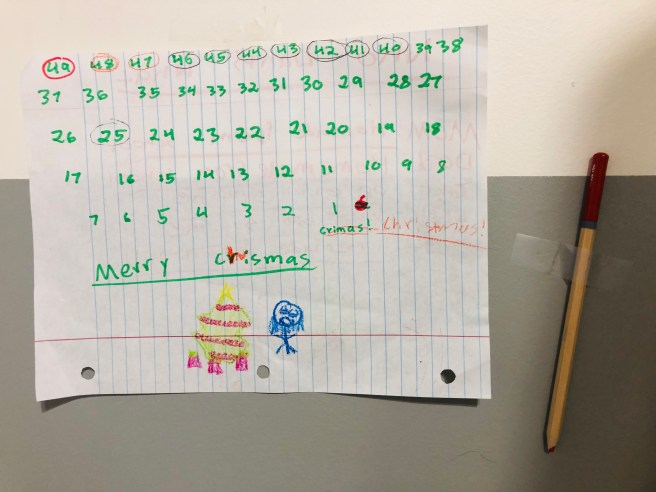 49 48 47 46 45 44 43 42 41 40 39 38
37 36 35 34 33 32 31 30 29 28 27
26 25 24 23 22 21 20 19 18
17 16 15 14 13 12 11 10 9 8
7 6 5 4 3 2 1
crimas! Christmas!
Merry chrismas